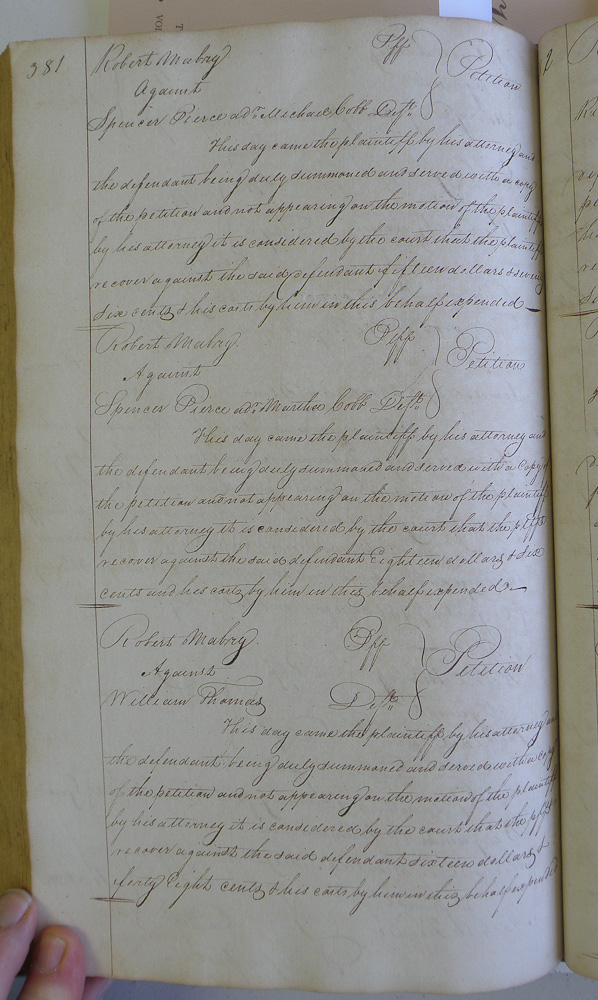 381
Robert Mabry Plff
Against Petition
Spencer Pierce adr. Michael Cobb Deft.
This day came the plaintiff by his attorney and
the defendant being duly summoned and served with a copy
of the petition and not appearing on the motion of the plaintiff
by his attorney it is considered by the court that the plaintiff
recover against the said defendant fifteen dollars & seventy
six cents & his costs by him in this behalf expended
Robert Mabry. Plff
Against Petition
Spencer Pierce adr. Martha Cobb Deft.
This day came the plaintiff by his attorney and
the defendant being duly summoned and served with a Copy of
the petition and not appearing on the motion of the plaintiff
by his attorney it is considered by the court that the plff
recover against the said defendant Eighteen dollars & six
cents and his costs by him in this behalf expended
Robert Mabry. Plff
Against Petition
William Thomas Deft.
This day came the plaintiff by his attorney and
the defendant being duly summoned and served with a copy
of the petition and not appearing on the motion of the plaintiff
by his attorney it is considered by the court that the plff
recover against the said defendant sixteen dollars &
forty Eight cents & his costs by him in this behalf expended
2